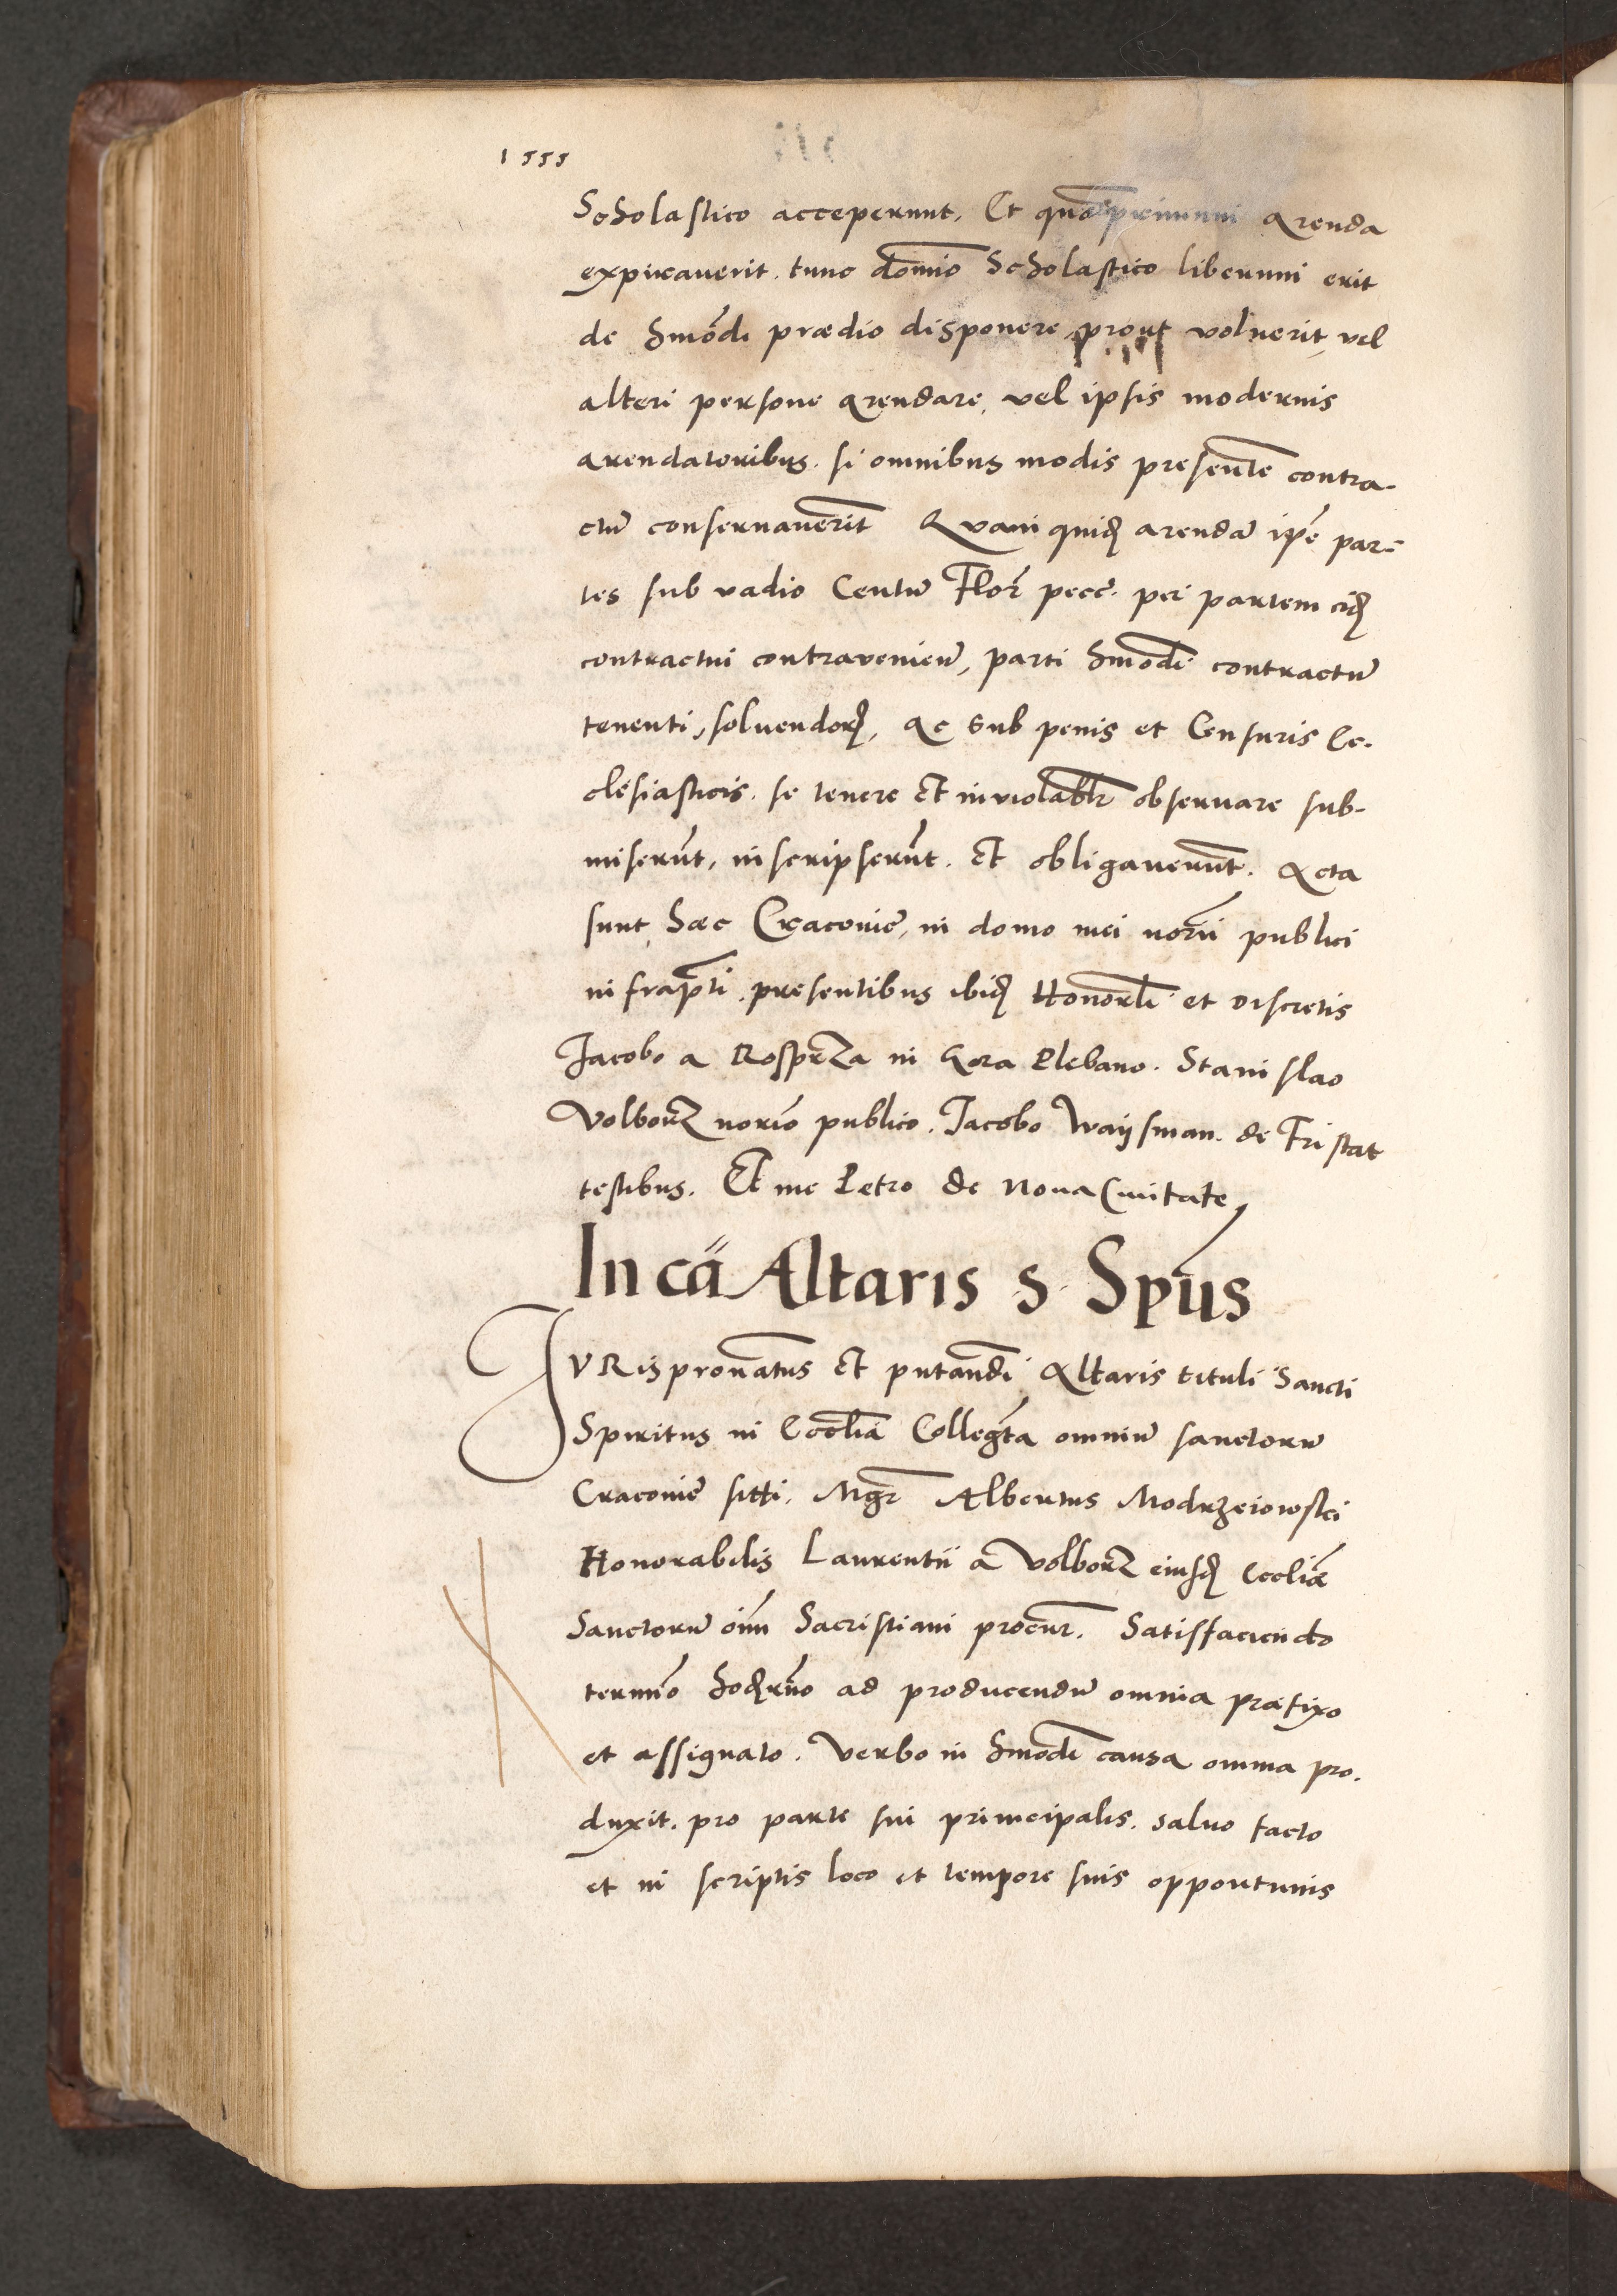 1555
Scholastico acceperunt, Et quāprimum arenda
expirauerit. tunc domīo Scholastico liberum erit
de hmōdi prædio disponere, prout voluerit, vel
alteri persone arendare, vel ipsis modernis
arendatoribus. si omnibus modis presentē contra-
ctū conseruauerīt Quam quidē arendā ipsē par-
tes sub vadio Centū Flor̄ pecc̄. per partem eidē
contractui contraueniēn̄, parti hmōdi contractū
tenenti, soluendor̄, ac sub penis et Censuris Ec-
clesiasticis. se tenere Et inuiolabl̄r obseruare sub-
miserūt, inscripserūt. Et obligauerūt. Acta
sunt hæc Cracouiē, in domo mei norīi publici
infrapt̄i. presentibus ibidē Honorl̄i et discretis
Jacobo a Rosprza in Gora Plebano. Stanislao
Volborz norīo publico. Jacobo Waysman. de Fristat
testibus. Et me Petro de Noua Ciuitate
In cā Altaris S. Spūs
JVRis pronatus̄ Et pn̄tandi Altaris tituli Sancti
Spiritus in Ecclīa Collegt̄a omniū sanctorū
Cracouiē sitti. Mgr̄ Albertus Modrzeiowski
Honorabilis Laurentii a Volborz eiusdē Eccliæ
Sanctorū oīm Sacristiani procur̄. Satisfaciendo
termīo hodiern̄o ad producendū omnia præfixo
et assignato. Verbo in hmōdi causa omnia pro-
duxit. pro parte sui principalis. saluo facto
et in scriptis loco et tempore suis opportunis